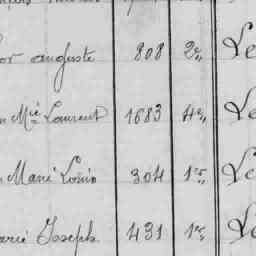 or auguste 808 2e Le
n Mié Laurent 1683 4e Le
Marie Louis 304 1re Le
arie Joseph 431 1re Le